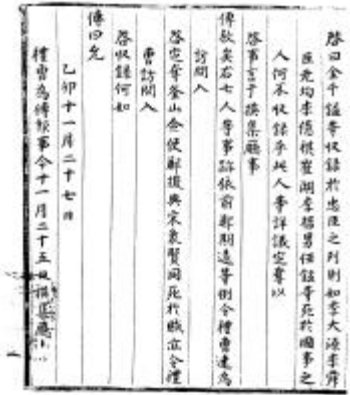 啓曰金千鎰收錄於忠臣之列則如李大源李舜
臣元均李億祺崔湖李福男任鉉等死於國事之
人何不收錄乎此人等詳議定奪以
啓事言于撰集廳事
傳敎矣右七人等事跡依前鄭期遠等例令禮曹速爲
訪問入
啓定奪釜山僉使鄭撥與宋象賢同死於賊並令禮
曹訪問入
啓收錄何如
傳曰允
乙卯十一月二十七日
禮曹爲傳敎事今十一月二十五日撰集廳